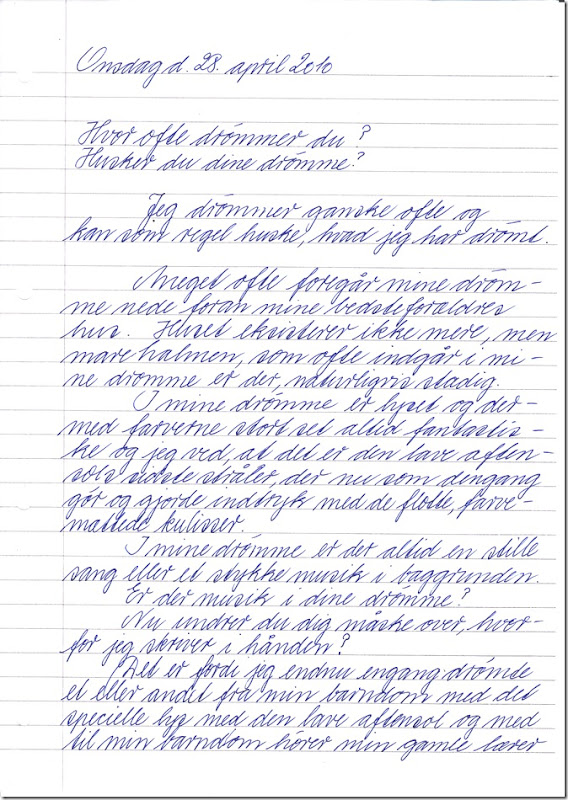 Onsdag d. 28. april 2010
Hvor ofte drömmer du?
Husker du dine drömme?
Jeg drömmer ganske ofte og
kan som regel huske, hvad jeg har drömt.
Meget ofte foregår mine dröm-
me nede foran mine bedsteforældres
hus. Huset eksisterer ikke mere, men
marehalmen, som ofte indgår i mi-
ne dromme er der, naturligvis stadig.
I mine drömme er lyset og der-
med farverne stort set altid fantastis-
ke og jeg ved, at det er den lave aften-
sols sidste stråler, der nu som dengang
gör og gjorde indtryk med de flotte, farve-
mættede kulisser.
I mine drömme er der altid en stille
sang eller et stykke musik i baggrunden.
Er der musik i dine drömme?
Nu undrer du dig måske over, hvor-
for jeg skriver i hånden?
Det er fordi jeg endnu engang drömte
et eller andet fra min barndom med det
specielle lys med den lave aftensol og med
til min barndom hörer min gamle lærer